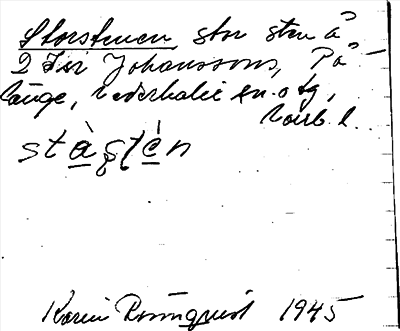 Storstenen, stor sten å
2 Johanssons, På-
länge, Nederkalix sn. o tg,
Norrb. l.
Karin Rönnquist 1945